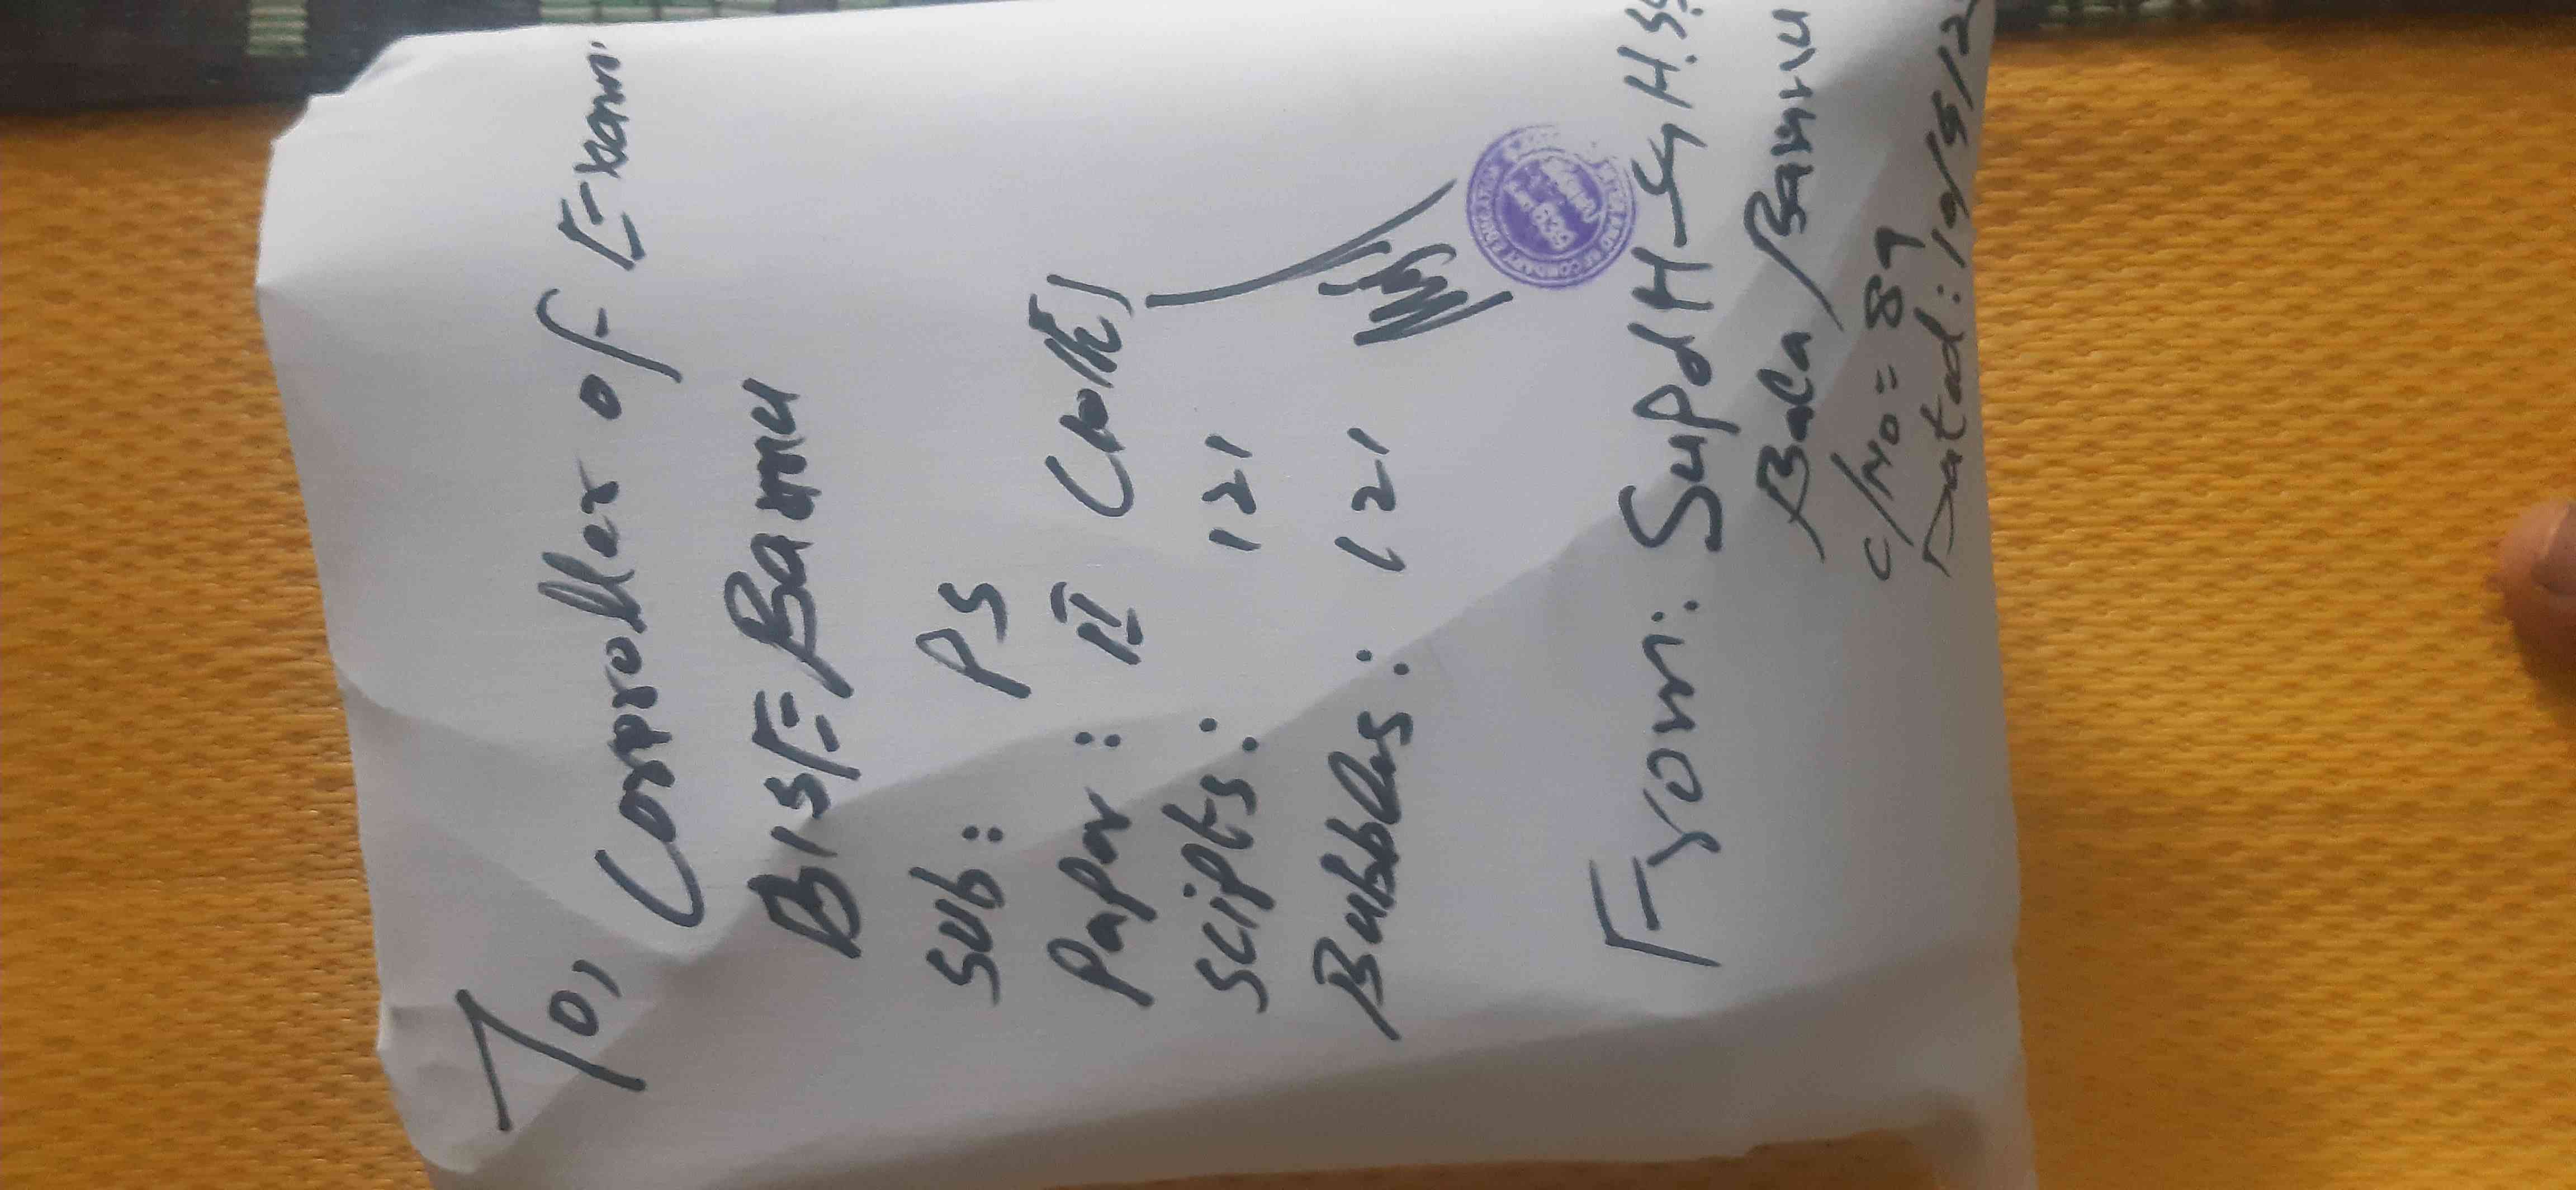 To,
Conproller of Exam:
BISE Bannu
Sub: PS
Paper: II (10th)
Scipts: 121
Bubbles: 121
From: Supdt GHSS
Baka / Bannu
C/No = 89
Dated: 19/5/2